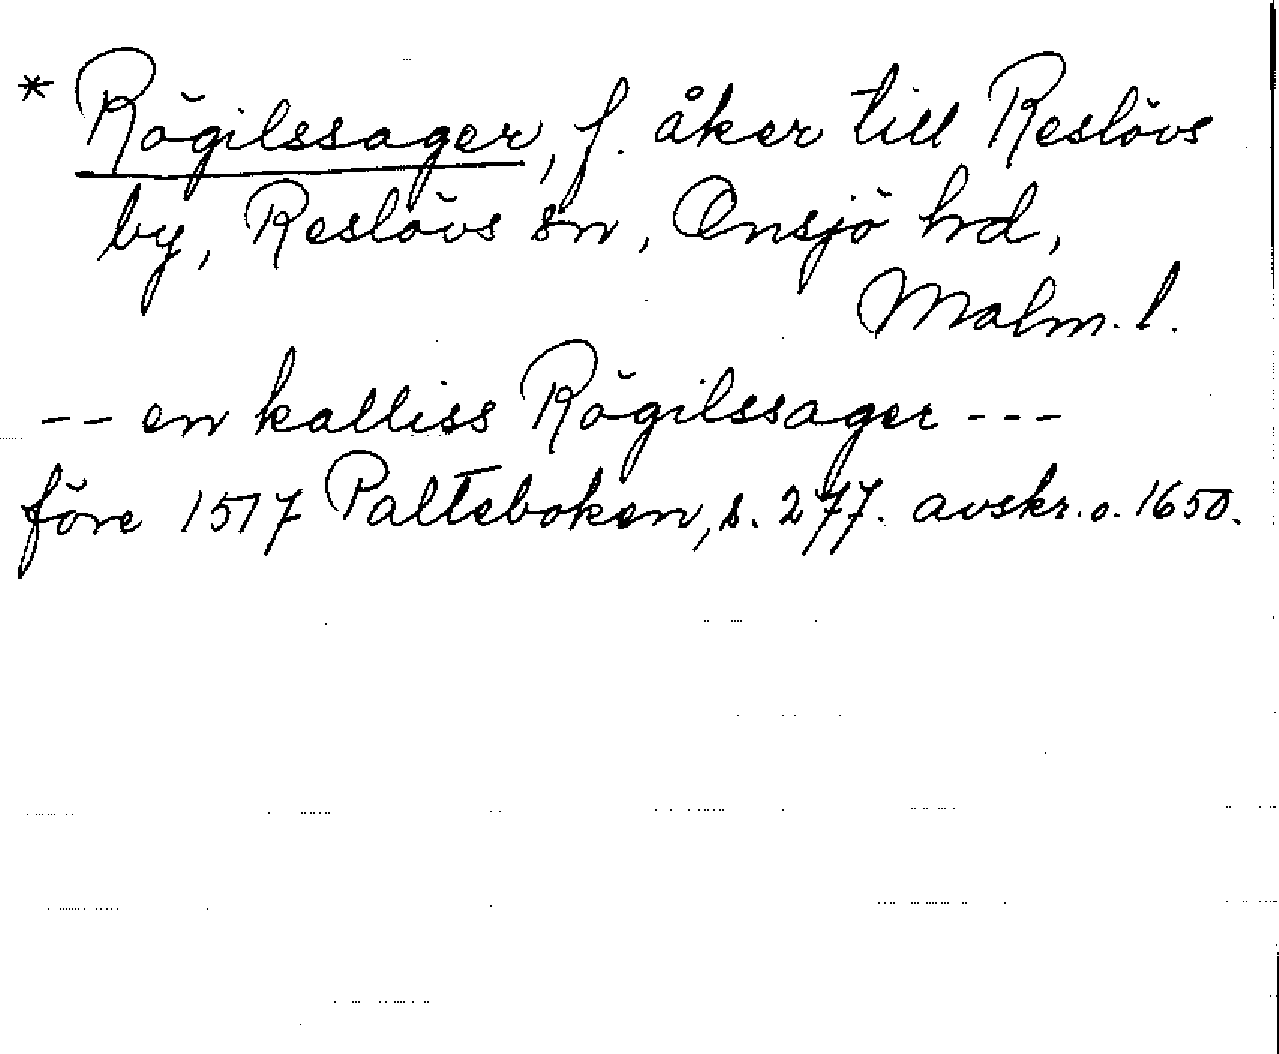 * Rögilssager, f. åker till Reslövs
by, Reslövs sn, Onsjö hrd,
Malm. l.
-- en kalliss Rögilssager ---
före 1517 Palteboken, s. 277. avskr. o. 1650.